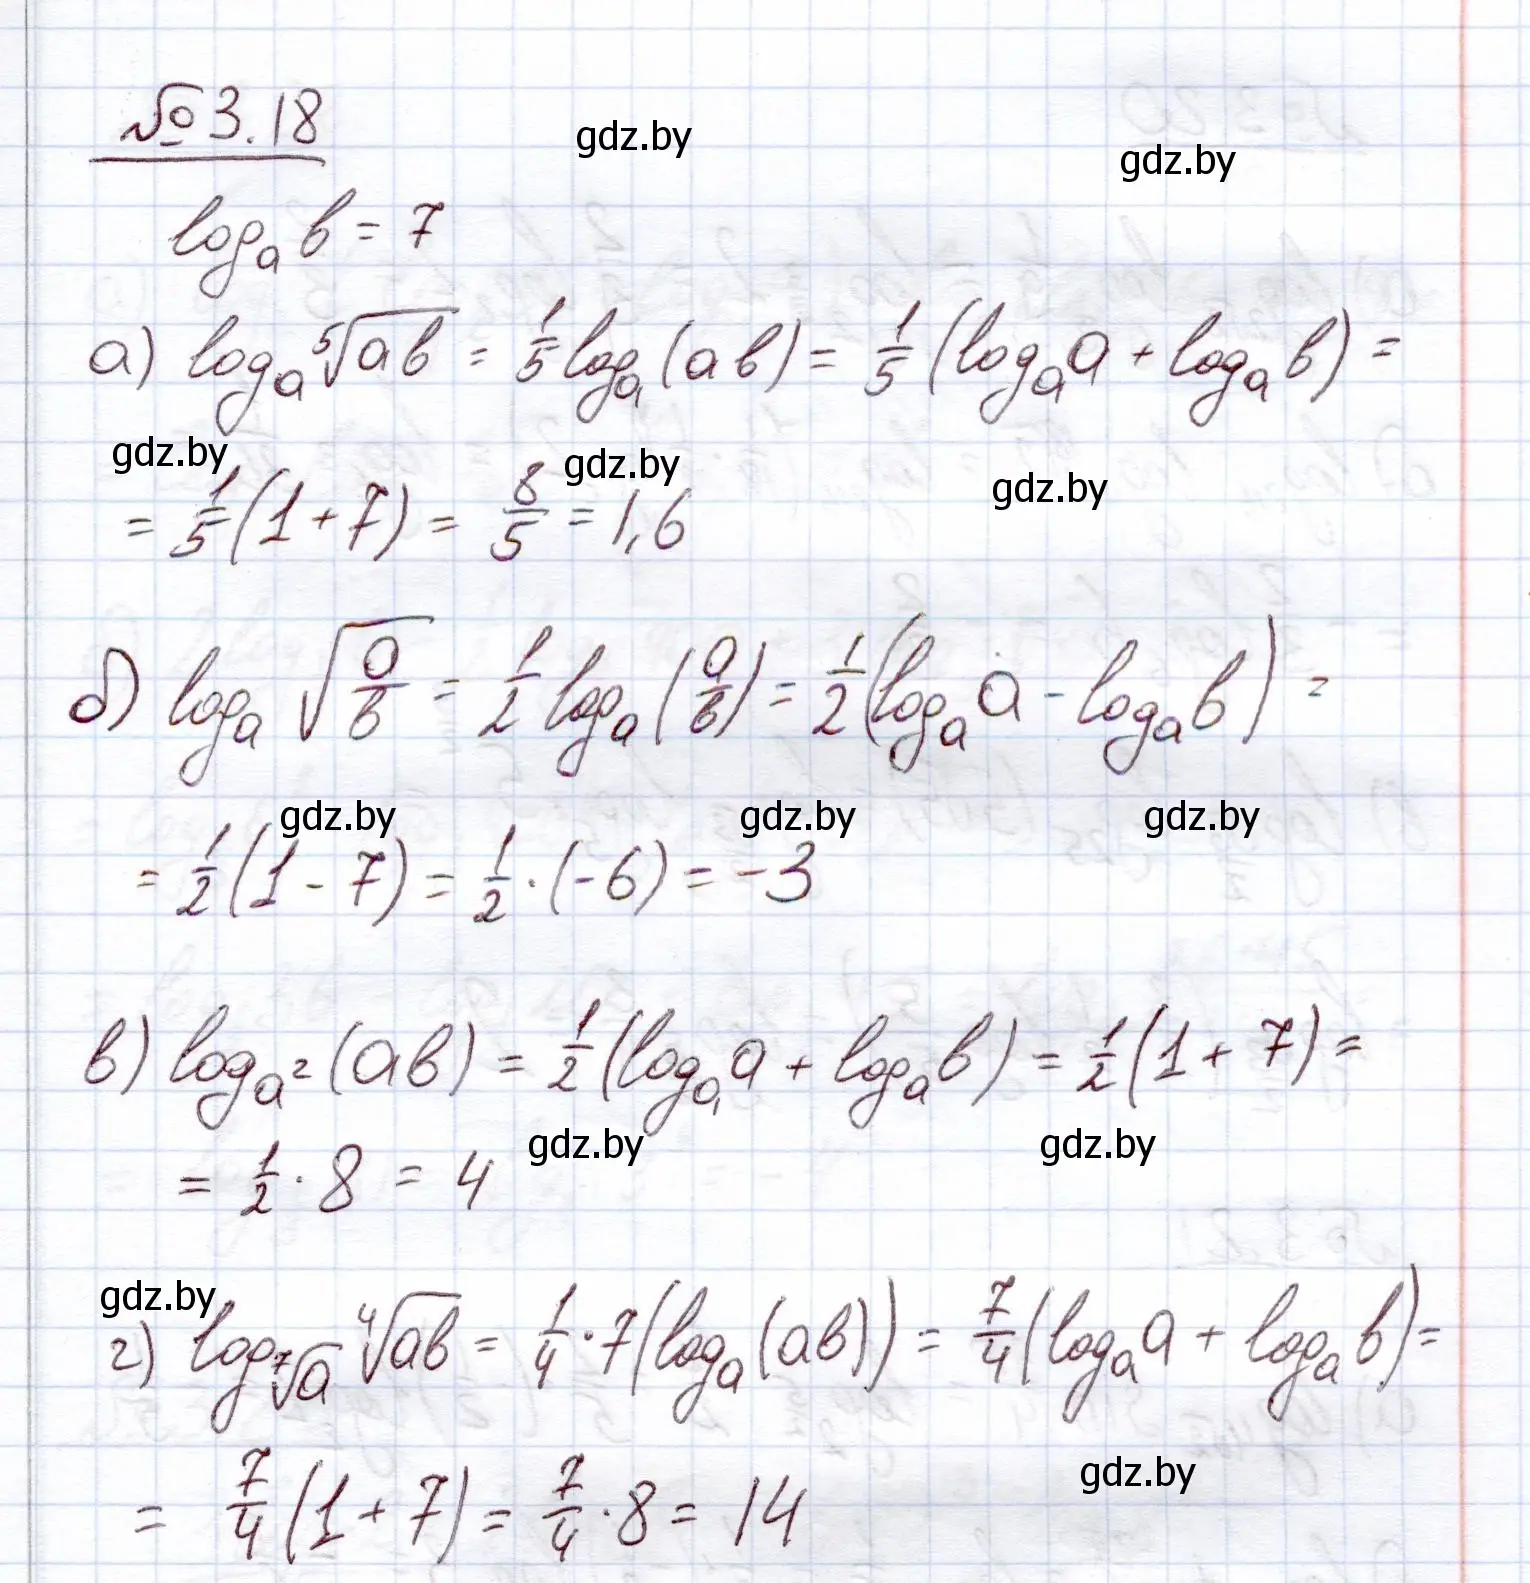 № 3.18
gdz.by
gdz.by
logₐ b = 7
а) logₐ ⁵√(ab) = 1/5 logₐ (ab) = 1/5 (logₐ a + logₐ b) =
gdz.by
gdz.by
gdz.by
= 1/5 (1 + 7) = 8/5 = 1,6
б) logₐ √(a/b) = 1/2 logₐ (a/b) = 1/2 (logₐ a - logₐ b) =
gdz.by
gdz.by
gdz.by
= 1/2 (1 - 7) = 1/2 · (-6) = -3
в) log_{a²} (ab) = 1/2 (logₐ a + logₐ b) = 1/2 (1 + 7) =
gdz.by
gdz.by
= 1/2 · 8 = 4
gdz.by
г) log_{⁷√a} ⁴√(ab) = 1/4 · 7 (logₐ (ab)) = 7/4 (logₐ a + logₐ b) =
gdz.by
= 7/4 (1 + 7) = 7/4 · 8 = 14